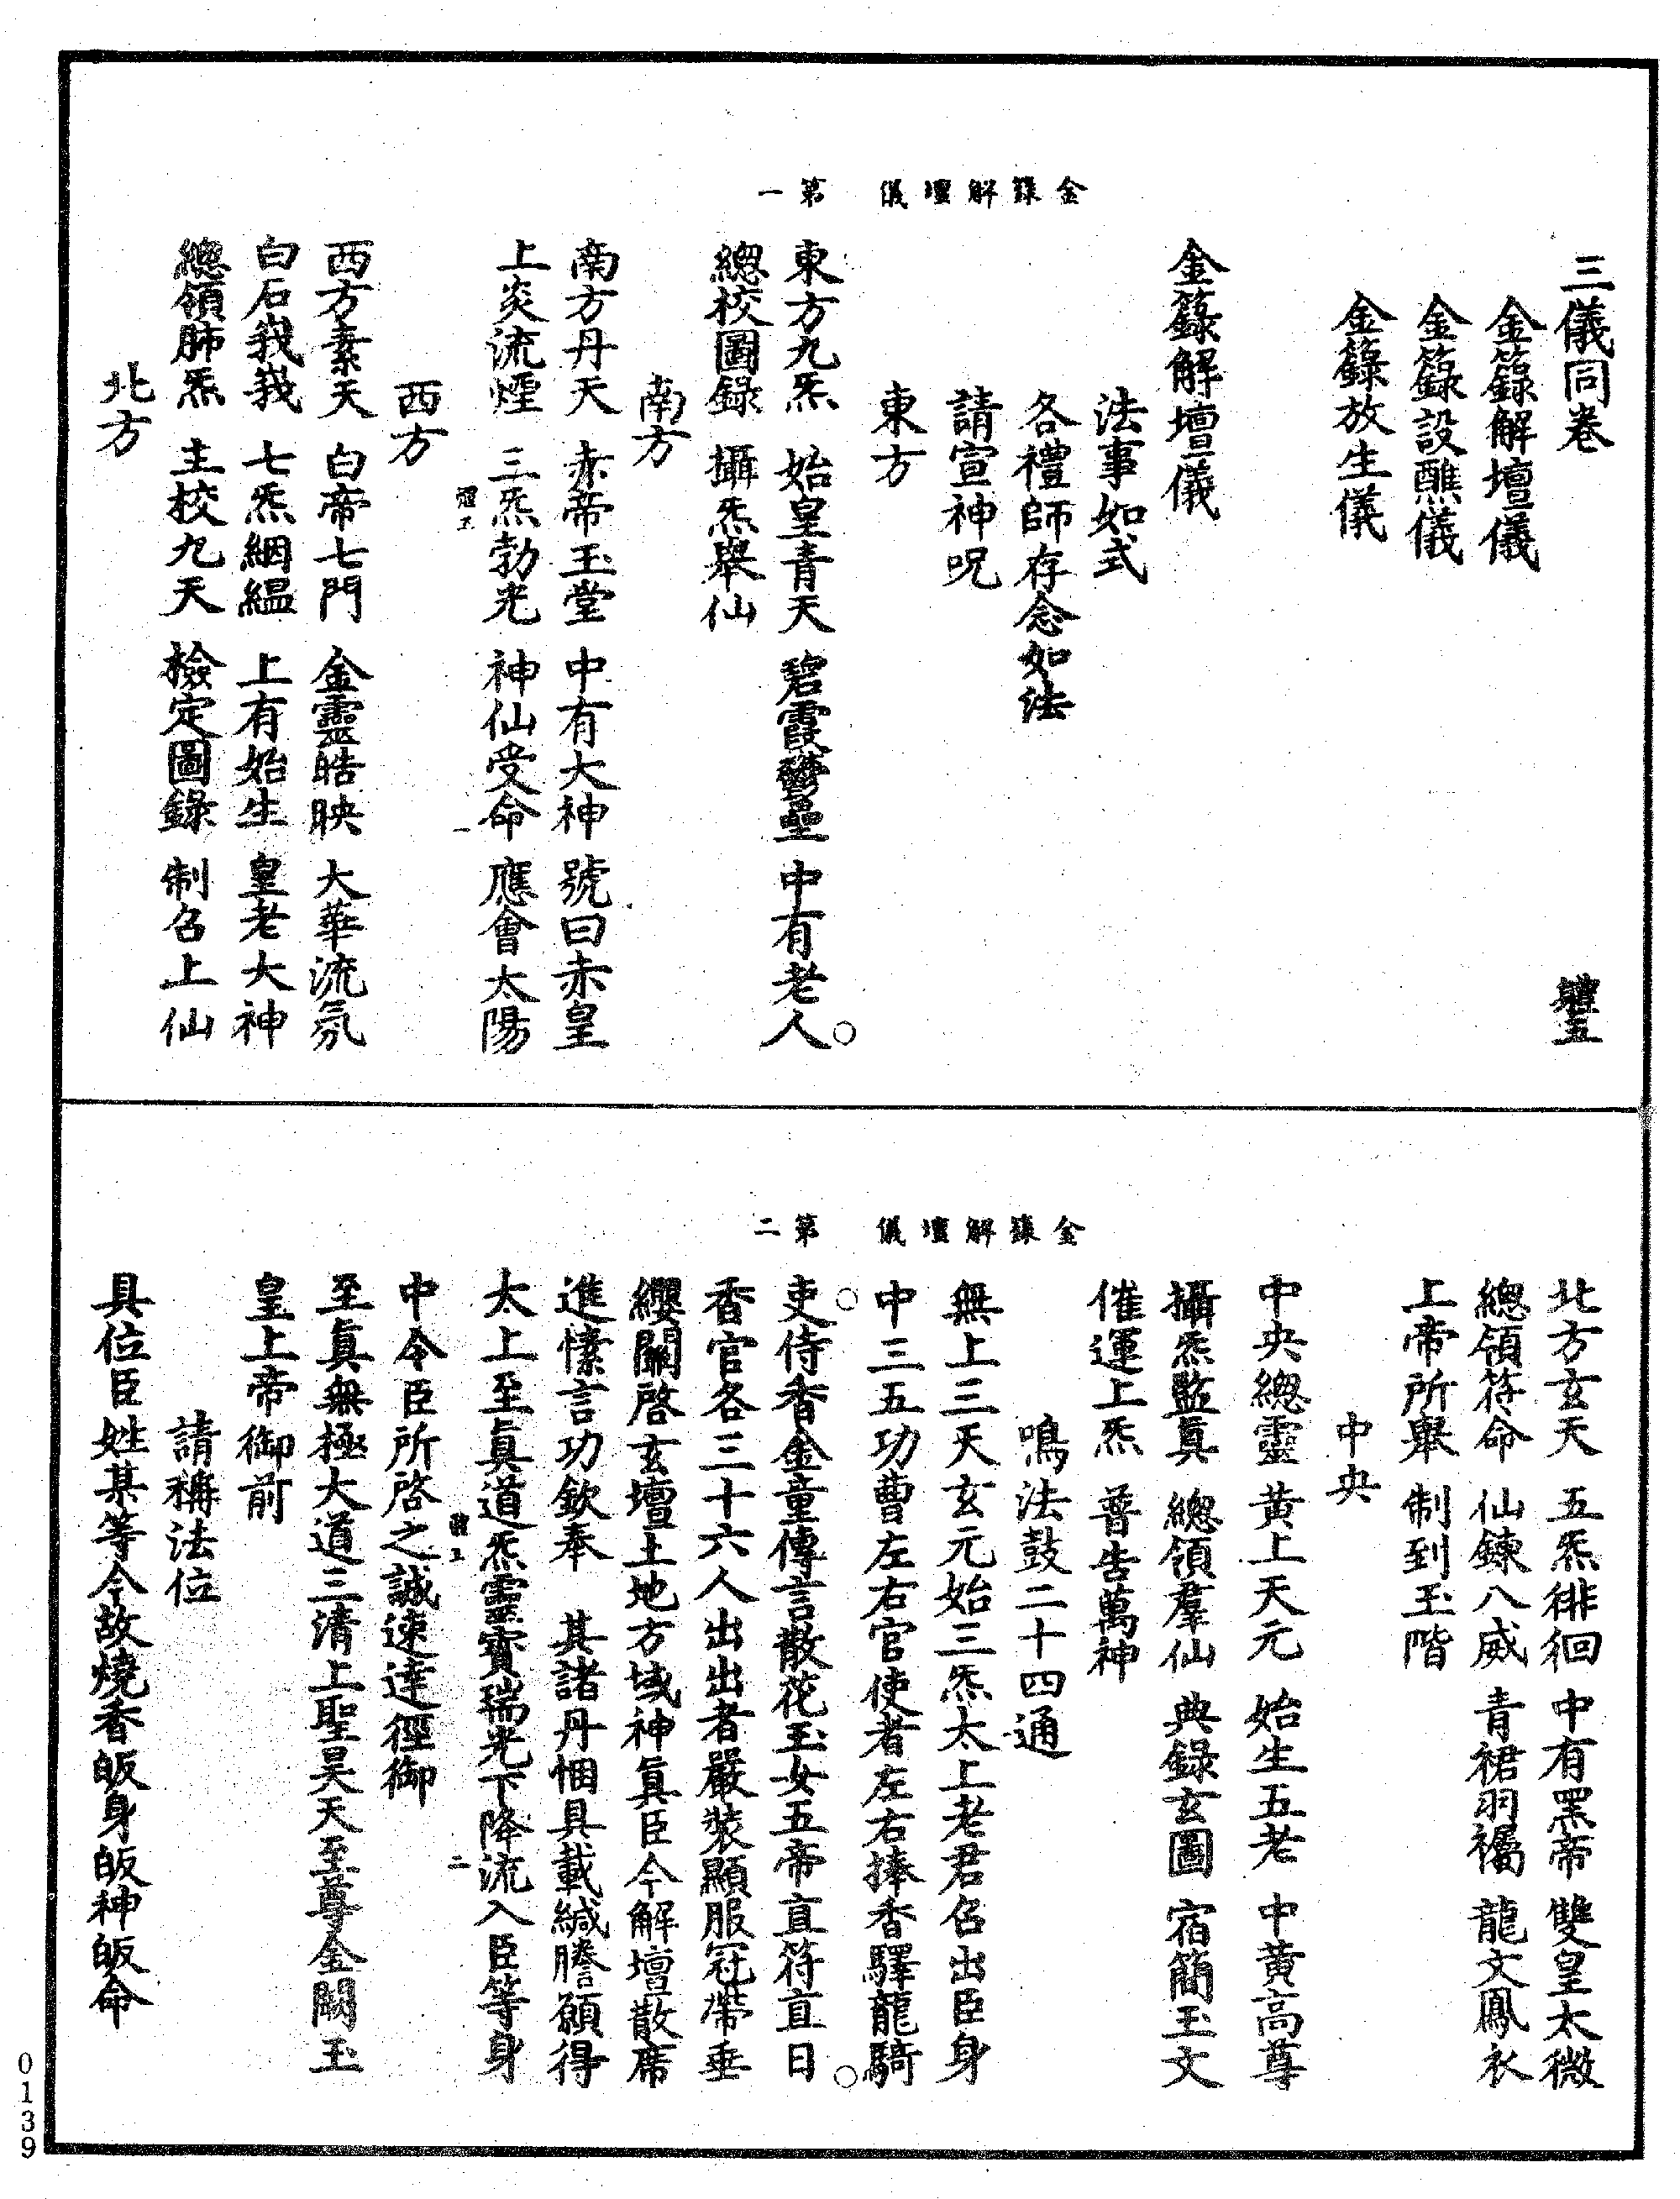 金籙解壇儀　第一
三儀同卷　體五
金籙解壇儀
金籙設醮儀
金籙放生儀
金籙解壇儀
法事如式
各禮師存念如法
請宣神呪
東方
東方九炁　始皇青天　碧霞鬱壘　中有老人
總校圖錄　攝炁舉仙
南方
南方丹天　赤帝玉堂　中有大神　號曰赤皇
上炎流煙　三炁勃光　神仙受命　應會太陽
體五　一
西方
西方素天　白帝七門　金靈皓映　大華流氛
白石峩峩　七炁絪縕　上有始生　皇老大神
總領肺炁　主校九天　檢定圖錄　制召上仙
北方
金籙解壇儀　第二
北方玄天　五炁徘徊　中有黑帝　雙皇太微
總領符命　仙鍊八威　青裙羽襡　龍文鳳衣
上帝所舉　制到玉階
中央
中央總靈　黃上天元　始生五老　中黃高尊
攝炁監眞　總領羣仙　典錄玄圖　宿簡玉文
催運上炁　普告萬神
鳴法鼓二十四通
無上三天玄元始三炁太上老君召出臣身
中三五功曹左右官使者左右捧香驛龍騎
吏侍香金童傳言散花玉女五帝直符直日
香官各三十六人出出者嚴裝顯服冠帶垂
纓關啓玄壇土地方域神眞臣今解壇散席
進愫言功欽奉　其諸丹悃具載緘謄願得
太上至眞道炁靈寶瑞光下降流入臣等身
體五　二
中令臣所啓之誠速達徑御
至眞無極大道三清上聖昊天至尊金闕玉
皇上帝御前
請稱法位
具位臣姓某等今故燒香皈身皈神皈命
0139